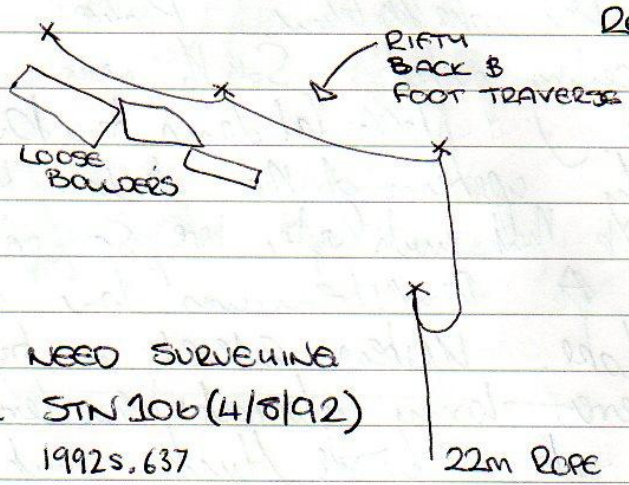 RIFTY
BACK &
FOOT TRAVERSE
LOOSE
BOULDERS
NEED SURVEYING
STN 10b (4/8/92)
1992s.637
22m ROPE